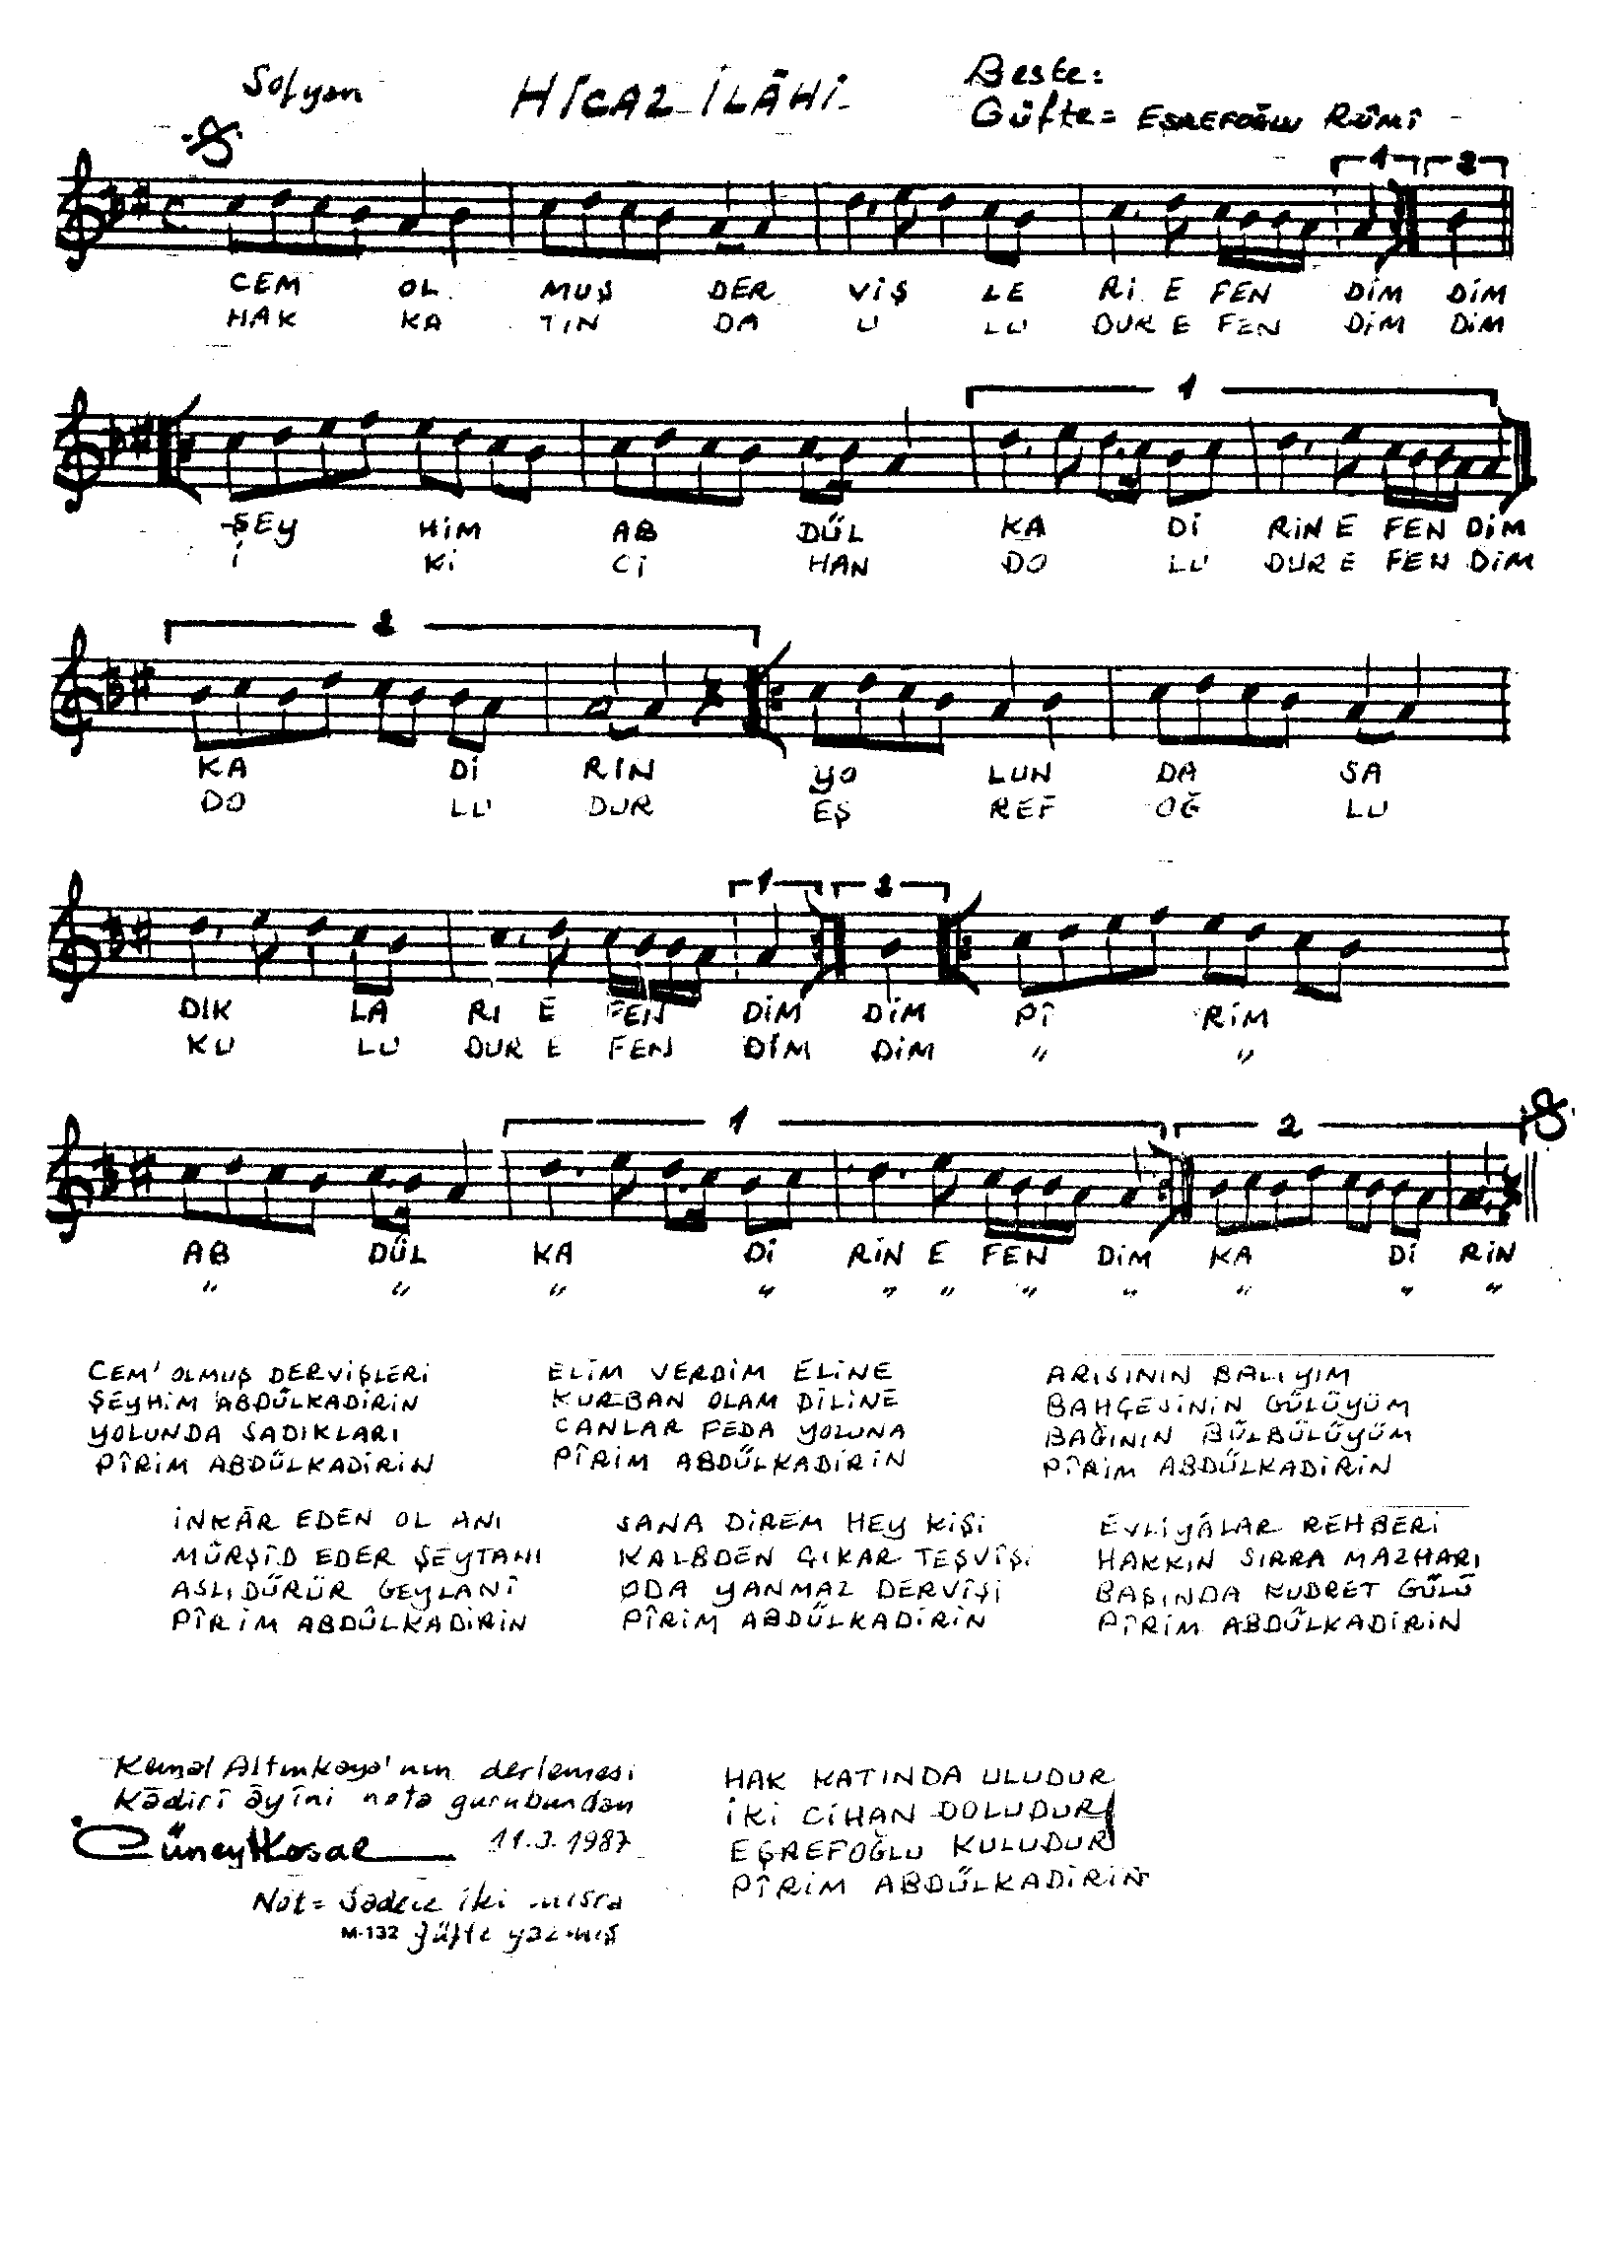 Sofyan
HİCAZ İLÂHİ
Beste:
Güfte= EŞREFOĞLU RÛMÎ
1 2
CEM OL MUŞ DER VİŞ LE Rİ E FEN DİM DİM
HAK KA TIN DA U LU DUR E FEN DİM DİM
1
ŞEY HİM AB DÜL KA Dİ RİN E FEN DİM
İ Kİ Cİ HAN DO LU DUR E FEN DİM
2
KA Dİ RİN YO LUN DA SA
DO LU DUR EŞ REF OĞ LU
1 2
DIK LA RI E FEN DİM DİM PÎ RİM
KU LU DUR E FEN DİM DİM " "
1 2
AB DÜL KA Dİ RİN E FEN DİM KA Dİ RİN
" " " " " " " " " " "
CEM' OLMUŞ DERVİŞLERİ
ŞEYHİM ABDÜLKADİRİN
YOLUNDA SADIKLARI
PÎRİM ABDÜLKADİRİN
ELİM VERDİM ELİNE
KURBAN OLAM DİLİNE
CANLAR FEDA YOLUNA
PÎRİM ABDÜLKADİRİN
ARISININ BALIYIM
BAHÇESİNİN GÜLÜYÜM
BAĞININ BÜLBÜLÜYÜM
PÎRİM ABDÜLKADİRİN
İNKÂR EDEN OL ANI
MÜRŞÎD EDER ŞEYTANI
ASLIDÜRÜR GEYLANÎ
PÎRİM ABDÜLKADİRİN
SANA DİREM HEY KİŞİ
KALBDEN ÇIKAR TEŞVÎŞİ
ODA YANMAZ DERVİŞİ
PÎRİM ABDÜLKADİRİN
EVLİYÂLAR REHBERİ
HAKKIN SIRRA MAZHARI
BAŞINDA KUDRET GÜLÜ
PÎRİM ABDÜLKADİRİN
Kemal Altınkaya'nın derlemesi
Kâdirî âyîni nota gurubundan
Cüneyt Kosal 11.3.1987
Not= Sadece iki mısra
M-132 güfte yazmış
HAK KATINDA ULUDUR
İKİ CİHAN DOLUDUR
EŞREFOĞLU KULUDUR
PÎRİM ABDÜLKADİRİN